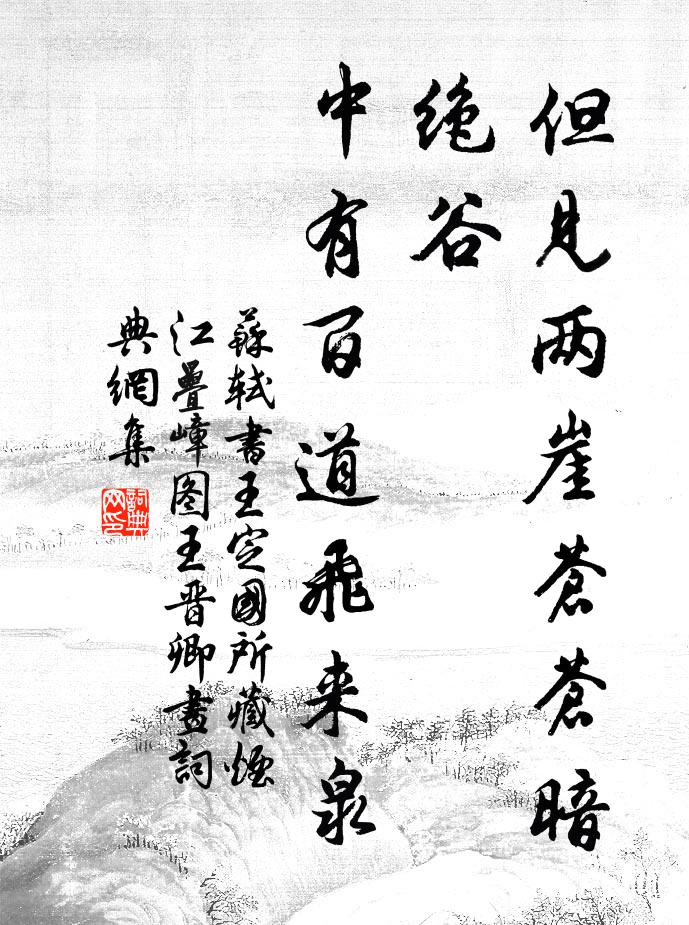 但见两崖苍苍暗
绝谷
中有百道飞来泉
蘇軾書王定國所藏煙
江疊嶂图王晋卿畫詞
典網集
詞典網印